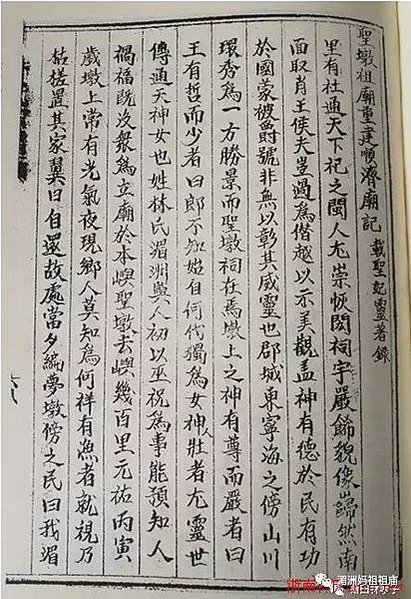 聖墩祖廟重建順濟廟記 載聖妃靈著錄
里有社通天下祀之閩人尤崇恢閎祠宇嚴飾貌像巋然南
面取肖王侯夫豈過為僭越以示美觀盖神有德於民有功
於國蒙被爵號非無以彰其威靈也郡城東寧海之傍山川
環秀為一方勝景而聖墩祠在焉墩上之神有尊而嚴者曰
王有哲而少者曰郎不知始自何代獨為女神人壯者尤靈世
傳通天神女也姓林氏湄洲嶼人初以巫祝為事能預知人
禍福既沒衆為立廟於本嶼聖墩去嶼幾百里元祐丙寅
歲墩上常有光氣夜現鄉人莫知為何祥有漁者就視乃
枯槎置其家翼日自還故處當夕編夢墩傍之民曰我湄
湄洲妈祖祖庙